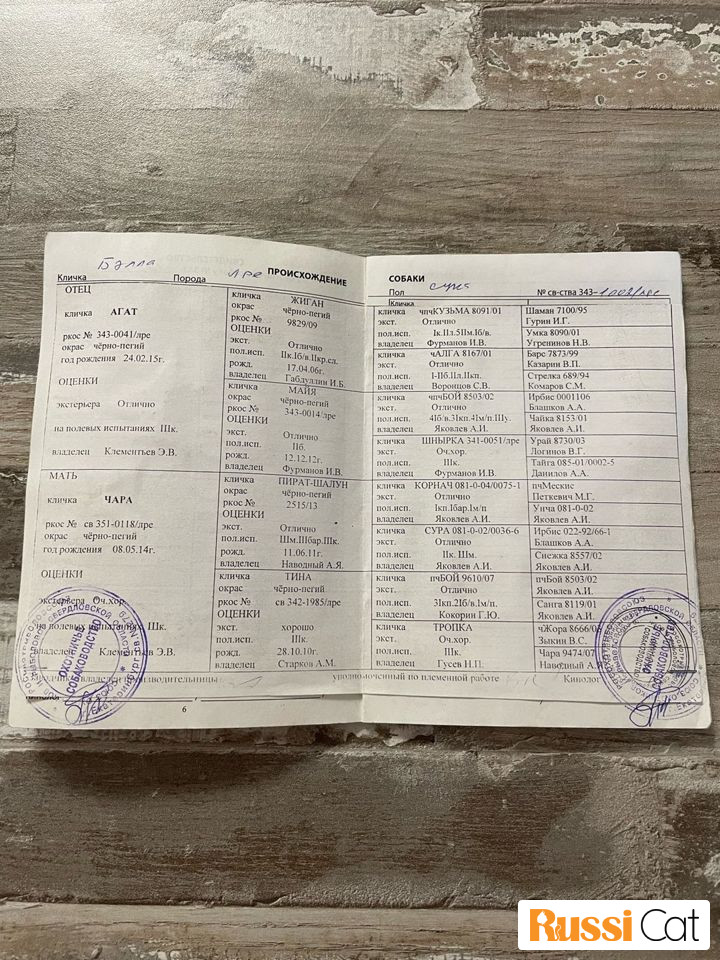 Бэлла
лре
ПРОИСХОЖДЕНИЕ
Кличка
Порода
ОТЕЦ
кличка АГАТ
ркос № 343-0041/лре
окрас чёрно-пегий
год рождения 24.02.15г.
ОЦЕНКИ
экстерьера Отлично
на полевых испытаниях IIк.
владелец Клементьев Э.В.
МАТЬ
кличка ЧАРА
ркос № св 351-0118/лре
окрас чёрно-пегий
год рождения 08.05.14г.
ОЦЕНКИ
экстерьера Оч.хор.
на полевых испытаниях IIIк.
владелец Клементьев Э.В.
кличка ЖИГАН
окрас чёрно-пегий
ркос № 9829/09
ОЦЕНКИ
экст. Отлично
пол.исп. IIк.Iб/в.IIкр.сл.
рожд. 17.04.06г.
владелец Габдуллин И.Б.
кличка МАЙЯ
окрас чёрно-пегий
ркос № 343-0014/лре
ОЦЕНКИ
экст. Отлично
пол.исп. IIб.
рожд. 12.12.12г.
владелец Фурманов И.В.
кличка ПИРАТ-ШАЛУН
окрас чёрно-пегий
ркос № 2515/13
ОЦЕНКИ
экст. Отлично
пол.исп. IIIм.IIIбар.IIIк.
рожд. 11.06.11г.
владелец Наводный А.Я.
кличка ТИНА
окрас чёрно-пегий
ркос № св 342-1985/лре
ОЦЕНКИ
экст. хорошо
пол.исп. IIIк.
рожд. 28.10.10г.
владелец Старков А.М.
6
СОБАКИ
Пол сука
№ св-ства 343-
Кличка
кличка чпчКУЗЬМА 8091/01
экст. Отлично
пол.исп. Iк.IIл.5IIм.Iб/в.
владелец Фурманов И.В.
Шаман 7100/95
Гурин И.Г.
Умка 8090/01
Угренинов Н.В.
кличка чАЛГА 8167/01
экст. Отлично
пол.исп. I-IIб.IIл.IIкп.
владелец Воронцов С.В.
Барс 7873/99
Казарин В.П.
Стрелка 689/94
Комаров С.М.
кличка пчБОЙ 8503/02
экст. Отлично
владелец Яковлев А.И.
Ирбис 0001106
Блашков А.А.
Чайка 8153/01
Яковлев А.И.
кличка ШНЫРКА 341-0051/лре
экст. Оч.хор.
пол.исп. IIIк.
владелец Фурманов И.В.
Урай 8730/03
Логинов В.Г.
Тайга 085-01/0002-5
Данилов А.А.
кличка КОРНАЧ 081-0-04/0075-1
экст. Отлично
пол.исп. Iкп.Iбар.Iм/п
владелец Яковлев А.И.
пчМескис
Петкевич М.Г.
Унча 081-0-02
Яковлев А.И.
кличка СУРА 081-0-02/0036-6
экст. Отлично
пол.исп. IIк. IIIм.
владелец Яковлев А.И.
Ирбис 022-92/66-1
Блашков А.А.
Снежка 8557/02
Яковлев А.И.
кличка пчБОЙ 9610/07
экст. Отлично
пол.исп. 3Iкп.2Iб/в.Iм/п.
владелец Кокорин Г.Ю.
пчБой 8503/02
Яковлев А.И.
Санга 8119/01
Яковлев А.И.
кличка ТРОПКА
экст. Оч.хор.
пол.исп. IIIк.
владелец Гусев Н.П.
чЖора 8666/0
Зыкин В.С.
Чара 9474/07
Наводный А.Я
уполномоченный по племенной работе
Кинолог
ОХОТНИЧЬЕ
СОБАКОВОДСТВО
Russi Cat